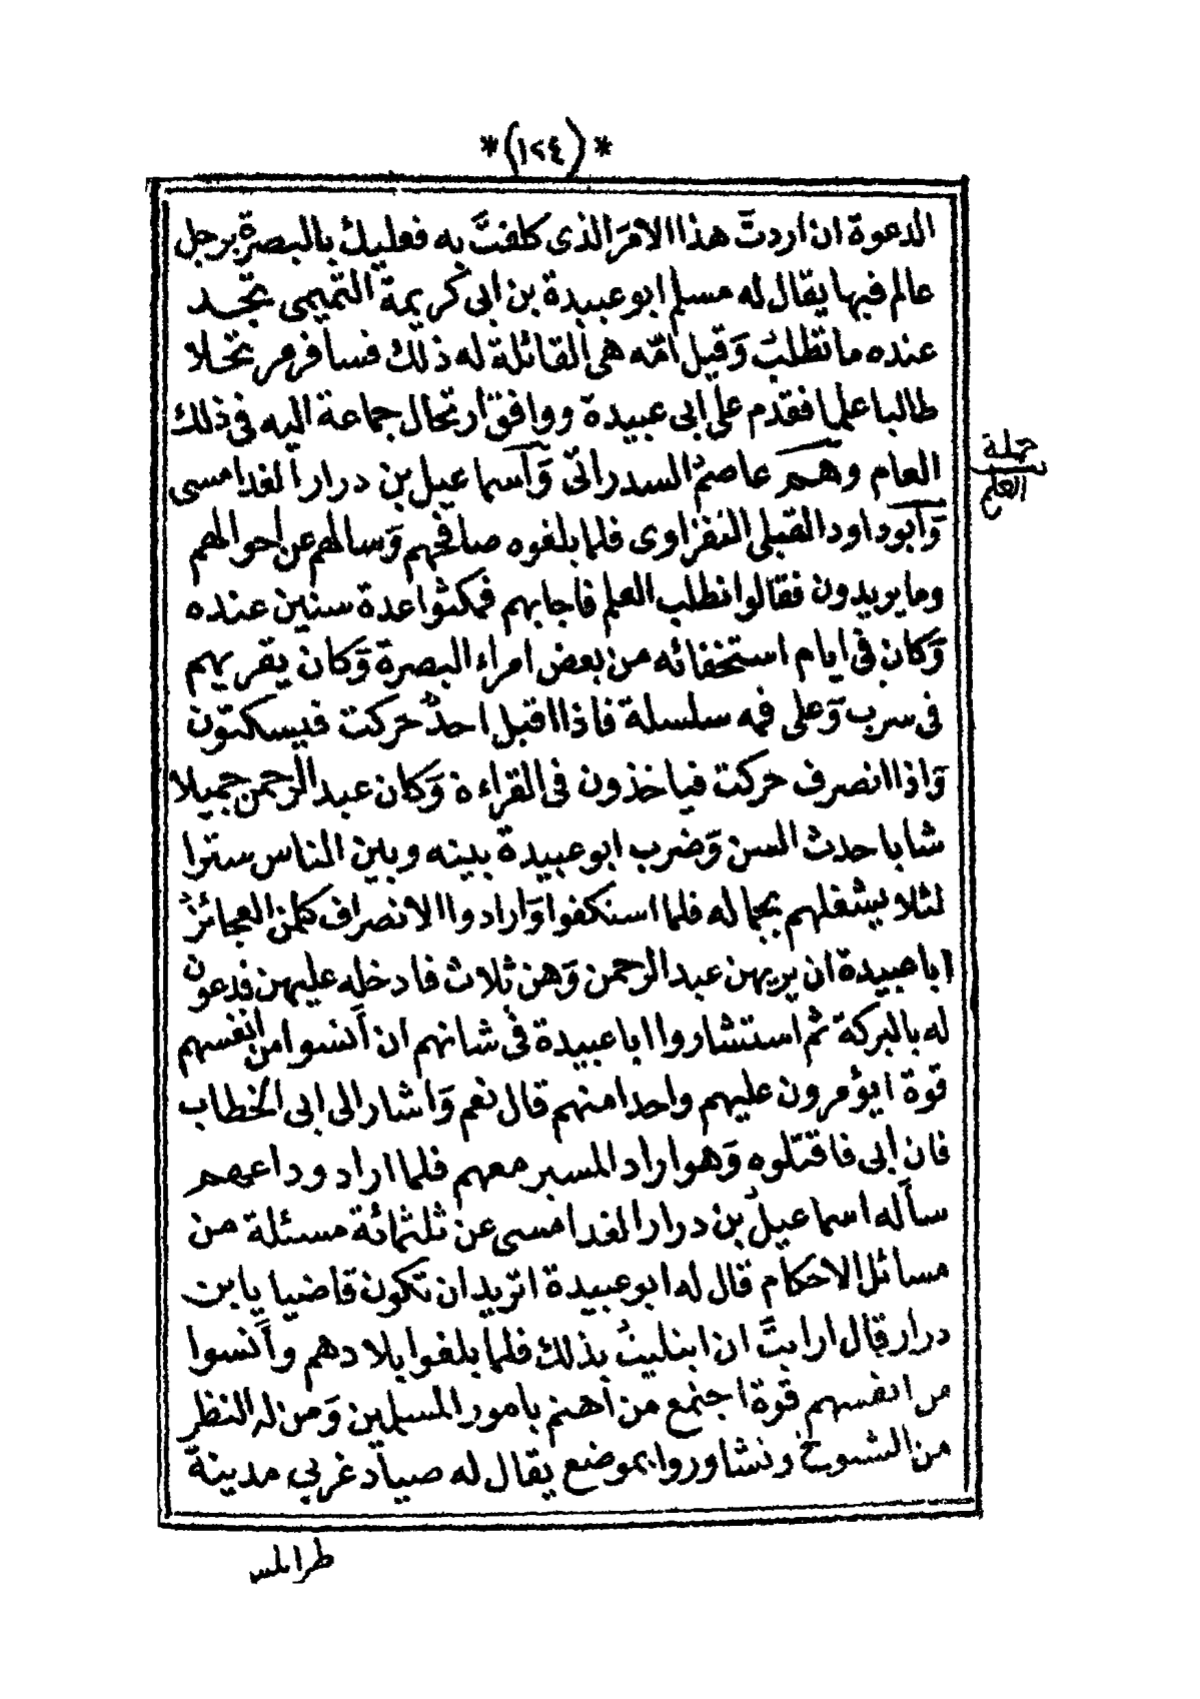 *(١٢٤)*
الدعوة ان اردتَ هذا الامرَ الذى كلفتَّ به فعليك بالبصرة برجل
عالم فيها يقال له مسلم ابو عبيدة بن ابى كريمة التميمى تجد
عنده ما تطلبُ وَقيل امّه هى القائلة له ذلك فسافر مرتحلا
طالبا علما فقدم على ابى عبيدة ووافق ارتحال جماعة اليه فى ذلك
العام وهم عاصمُ السدراتى وَاسماعيل بن درار الغدامسى
حملة
العلم
وَابوداود القبلى النفزاوى فلما بلغوه صافحهم وَسالهم عن احوالهم
وما يريدون فقالوا نطلب العلم فاجابهم فمكثوا عدة سنين عنده
وَكان فى ايام استخفائه من بعض امراء البصرة وَكان يقريهم
فى سرب وَعلى فمه سلسلة فاذا اقبل احدٌ حركت فيسكتون
وَاذا انصرف حركت فياخذون فى القراءة وَكان عبد الرحمن جميلا
شابا حدث السن وَضرب ابو عبيدة بينه وبين الناس سترا
لئلا يشغلهم بجماله فلما استكفوا وَارادوا الانصراف كلمن العجائزُ
ابا عبيدة ان يريهن عبد الرحمن وَهن ثلاث فادخله عليهن فدعون
له بالبركة ثم استشاروا ابا عبيدة فى شانهم ان أنسوا من انفسهم
قوة ايؤمرون عليهم واحدا منهم قال نعم وَاشار الى ابى الخطاب
فان ابى فاقتلوه وَهو اراد المسير معهم فلما اراد وداعهم
سأله اسماعيلُ بن درار الغدامسى عن ثلثمائة مسئلة من
مسائل الاحكام قال له ابو عبيدة اتريد ان تكون قاضيا يا بن
درار قال ارايتَّ ان ابتليتُ بذلك فلما بلغوا بلادهم وأنسوا
من انفسهم قوة اجتمع من اهتم بامور المسلمين وَمن له النظر
من الشيوخ وتشاوروا بموضع يقال له صياد غربي مدينة
طرابلس